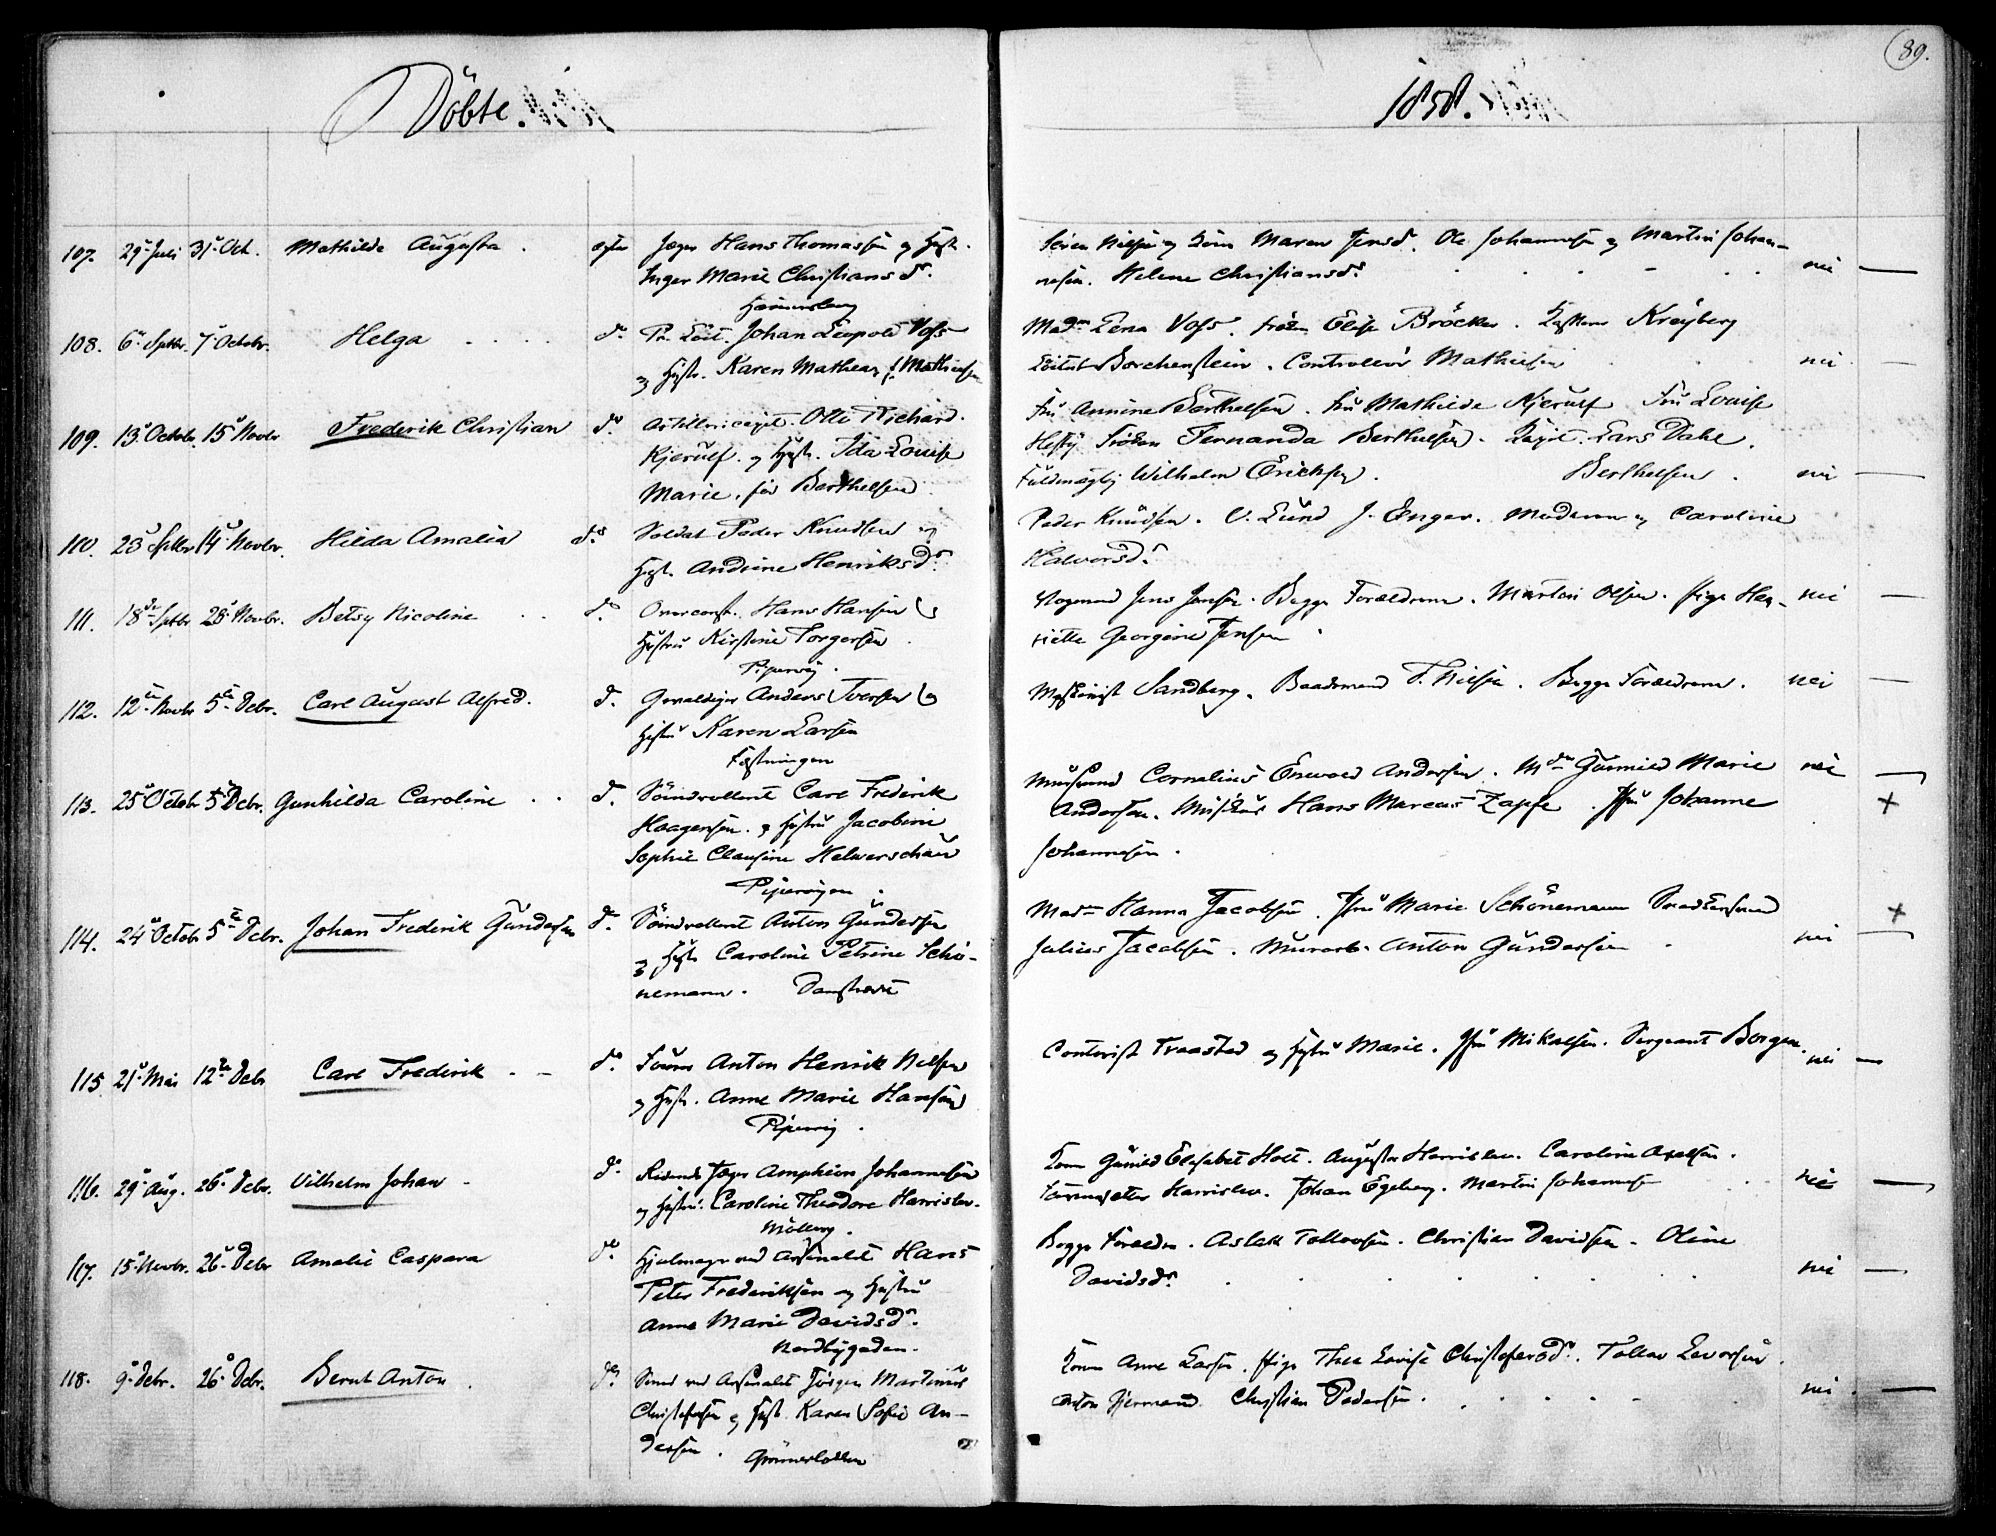 89.
Döbte.
1858.
107. 29 Juli 31 Oct. Mathilde Augusta . ægte Jæger Hans Thomassen og Hust.
Inger Marie Christiansd.
Søren Nilsen og Kone Maren Jensd. Ole Johannesen og Martin Johan-
nesen. Helene Christiansd. nei
108. 6 Septbr. 7 Octobr. Helga do Pr. Löit. Johan Leopold Voss
og Hustr. Karen Mathea f. Mathiesen
Mad. Lena Voss. Frøken Elise Bröcker. Kreyberg
Borchenstein. Controllör Mathiesen nei
109. 13 Octobr. 15 Novbr Frederik Christian do. Artillericapt. Otto Richard
Kjerulf og Hustr. Ida Louise
Marie, fød Berthelsen
Fru Annine Berthelsen. Fru Mathilde Kjerulf Fru Louise
Frøken Fernanda Berthelsen. Capt. Lars Dahl.
Fuldmægtig Wilhelm Ericksen. Berthelsen. nei
110. 23 Septbr 14 Novbr. Hilda Amalia do. Soldat Peder Knudsen og
Hust. Andrine Henriksd.
Peder Knudsen. C. Lund J. Enger. Moderen og Caroline
Halvorsd.
111. 18 Septbr 28 Novbr. Betsy Nicoline do. Overconst. Hans Hansen og
Hustru Kirstine Torgersen
Pipervig.
Vognmd Jens Jensen. Begge Forældrene. Martin Olsen. Pige Hen-
riette Georgine Jensen. nei
112. 12 Novbr 5 Debr. Carl August Alfred. do. Gevaldiger Anders Iversen og
Hustru Karen Larsen
Fæstningen
Maskinist Sandberg. Baadsmand T. Nielsen. Begge Forældrene. nei
113. 25 Octobr 5 Debr. Gunhilda Caroline do. Søindrolleret Carl Frederik
Haagensen og Hustru Jacobine
Sophie Clausine Helverschau
Pipervigen.
Muursvend Cornelius Enevold Andersen. Md. Gunnild Marie nei
Andersen. Musikus Hans Marcus Zapfe. Jfru Johanne
Johannesen.
114. 24 Octobr 5 Debr. Johan Frederik Gundersen do. Søindrolleret Anton Gundersen
og Hustr. Caroline Petrine Schö-
nemann.
Mad. Hanna Jacobsen. Jfru Marie Schönemann
Julius Jacobsen. Murarb. Anton Gundersen. nei
115. 21 Mai 12 Debr Carl Frederik do. Anton Henrik Nilsen
og Hustr. Anne Marie Hansen
Pipervig.
Contorist Traasted og Hustru Marie. Jfru Mikalsen. Sergeant Borgen. nei
116. 29 Aug. 26 Debr. Vilhelm Johan do. Ridende Jæger Amphion Johannesen
og Hustru. Caroline Theodore Harrisler.
Möllerg.
Kone Gunild Elisabet Holt. Augusta Harrisler. Caroline Axelsen.
Harrisler. Johan Egeberg. Martin Johannesen nei
117. 15 Novbr. 26 Debr Amalie Caspara do. Hjulmager ved Arsenalet Hans
Peter Frederiksen og Hustru
Anne Marie Davidsd.
Nordbygaden.
Begge Forældre. Aslak Tollevsen. Christian Davidsen. Oline
Davidsd. nei
118. 9 Debr. 26 Debr. Bernt Anton do. Smed ved Arsenalet Jørgen Martinius
Christofersen og Hust. Karen Sofie An-
dersen. Grünerløkken
Kone Anne Larsen. Pige Thea Lovise Christofersd. Tollev Levorsen.
Anton Christian Pedersen. nei